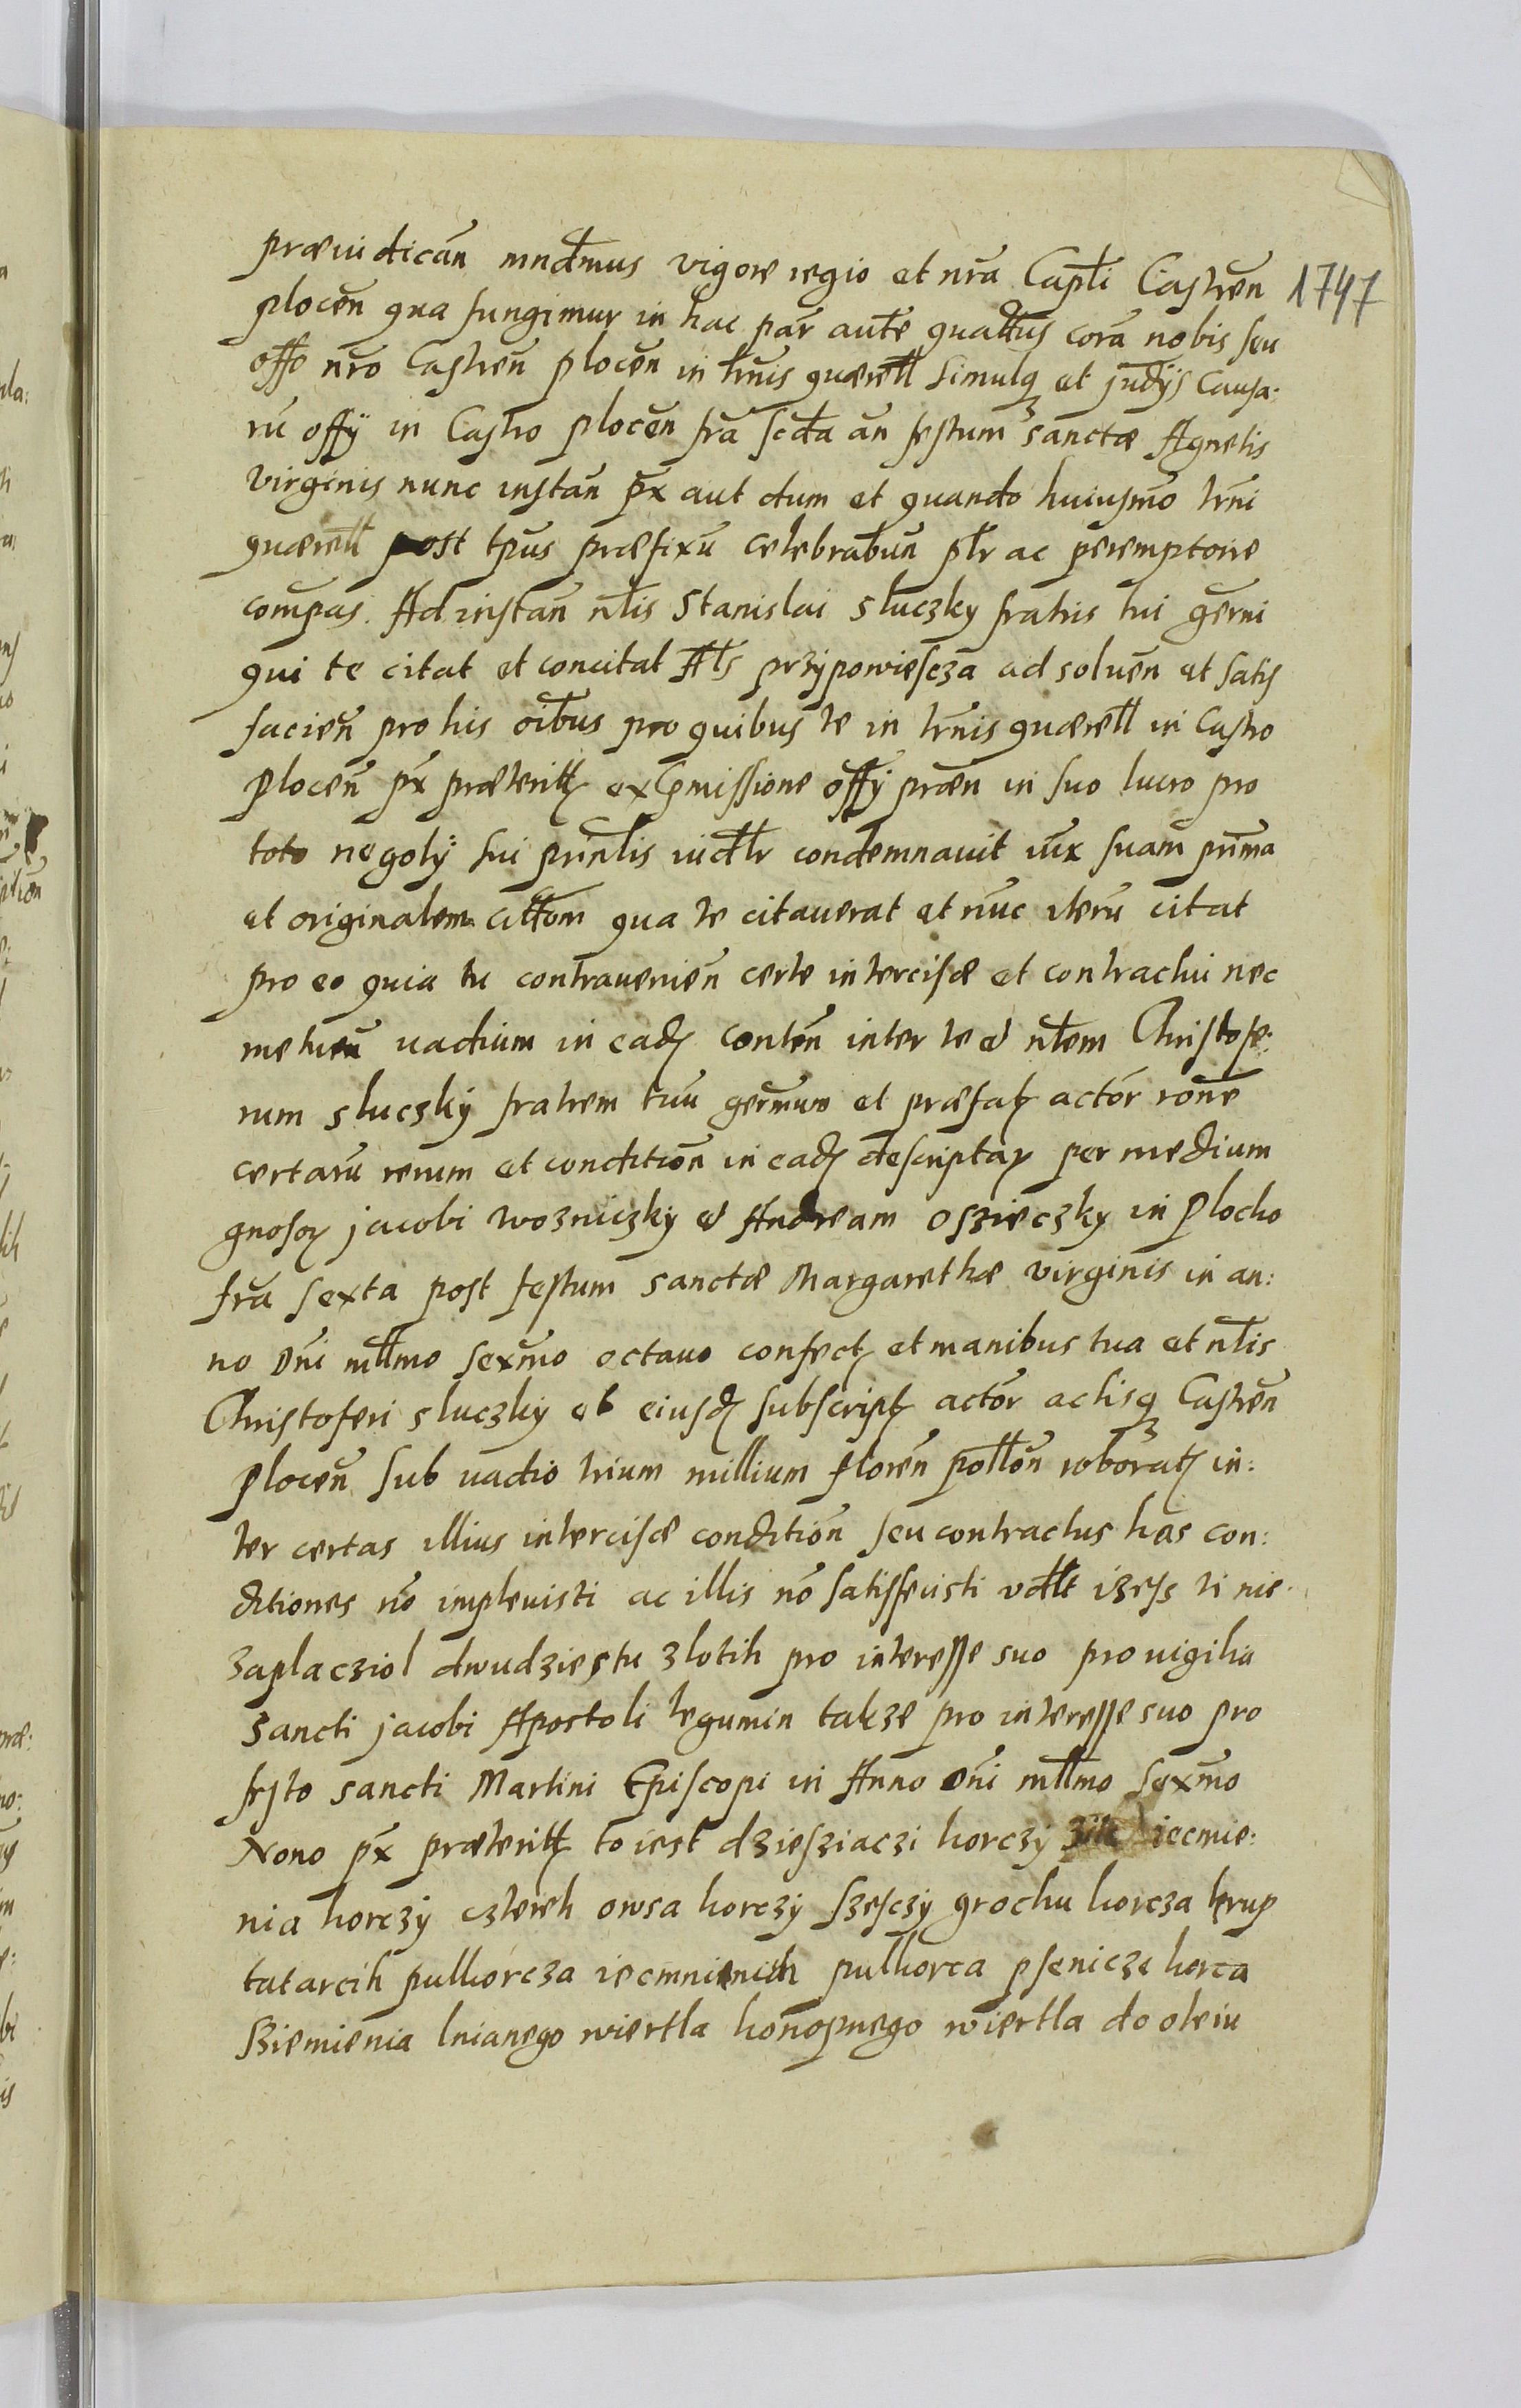 præiudican̄ mndmus vigore regio et nr̄a Caplī Castren̄
plocen̄ qua fungimur in hac par̄ autē quattūs corā nobis seu
offo nr̄o Castren̄ plocen̄ in trn̄is quærell simulq et judijs Causa:
rū offy in Castro plocen̄ fr̄a scda an̄ festum sanctæ Agnetis
virginis nunc instan̄ px̄ aut dum et quando huiusmō trn̄i
quærell post tp̄us præfixū celebrabun̄ ptr ac peremptorie
compas. Ad instan̄ nlis Stanislai sluczky fratris tui germ̄i
qui te citat et concitat Als przÿpowiescza ad soluen̄ et satis
facien̄ pro his oībus pro quibus te in trn̄is quærell in Castro
Plocen̄ px̄ præteritt ex pmissione offy præn̄ in suo lucro pro
toto negotÿ sui prinlis iudtr condemnauit iux̄ suam prīma
et originalem cittom̄ qua te citauerat et nūc iterū citat
pro eo quia tu contrauenien̄ certe intercisæ et contractui nec
metuen̄ uadium in eadꝫ conten̄ inter te et nlem Christofe:
rum sluczkÿ fratrem tuū germūm et præfatꝫ actor̄ ron̄e
certarū rerum et condition̄ in eadꝫ descriptaꝝ per medium
gnosoꝝ jacobi wozniczkÿ et Andream oszieczky in Plocko
fr̄a sexta post festum sanctæ Margarethæ virginis in an:
no Dn̄i mllmo sexm̄o octauo confectꝫ et manibus tua et nlis
Christoferi sluczkÿ et eiusdꝫ subscriptꝫ actor̄ actisq Castren̄
plocen̄ sub uadio trium millium floren̄ pollon̄ roboratꝫ in:
ter certas illius intercisæ condition̄ seu contractus has con:
ditiones nō impleuisti ac illis nō satisfecisti vdllt izess ti nie
zaplacziol dwudziestu zlotih pro interesse suo pro uigilia
sancti jacobi Apostoli legumin takze pro interesse suo pro
festo sancti Martini Episcopi in Anno Dn̄i mllmo sexm̄o
Nono px̄ præteritt to iest dziesziaczi korczÿ iecmie:
nia korczÿ czterek owsa korczÿ szesczÿ grochu korcza krup
tatarcih pulkorcza iecmnienich pulkorca psenicze korca
sziemienia lnianego wiertla konopnego wiertla do oleiu
1747